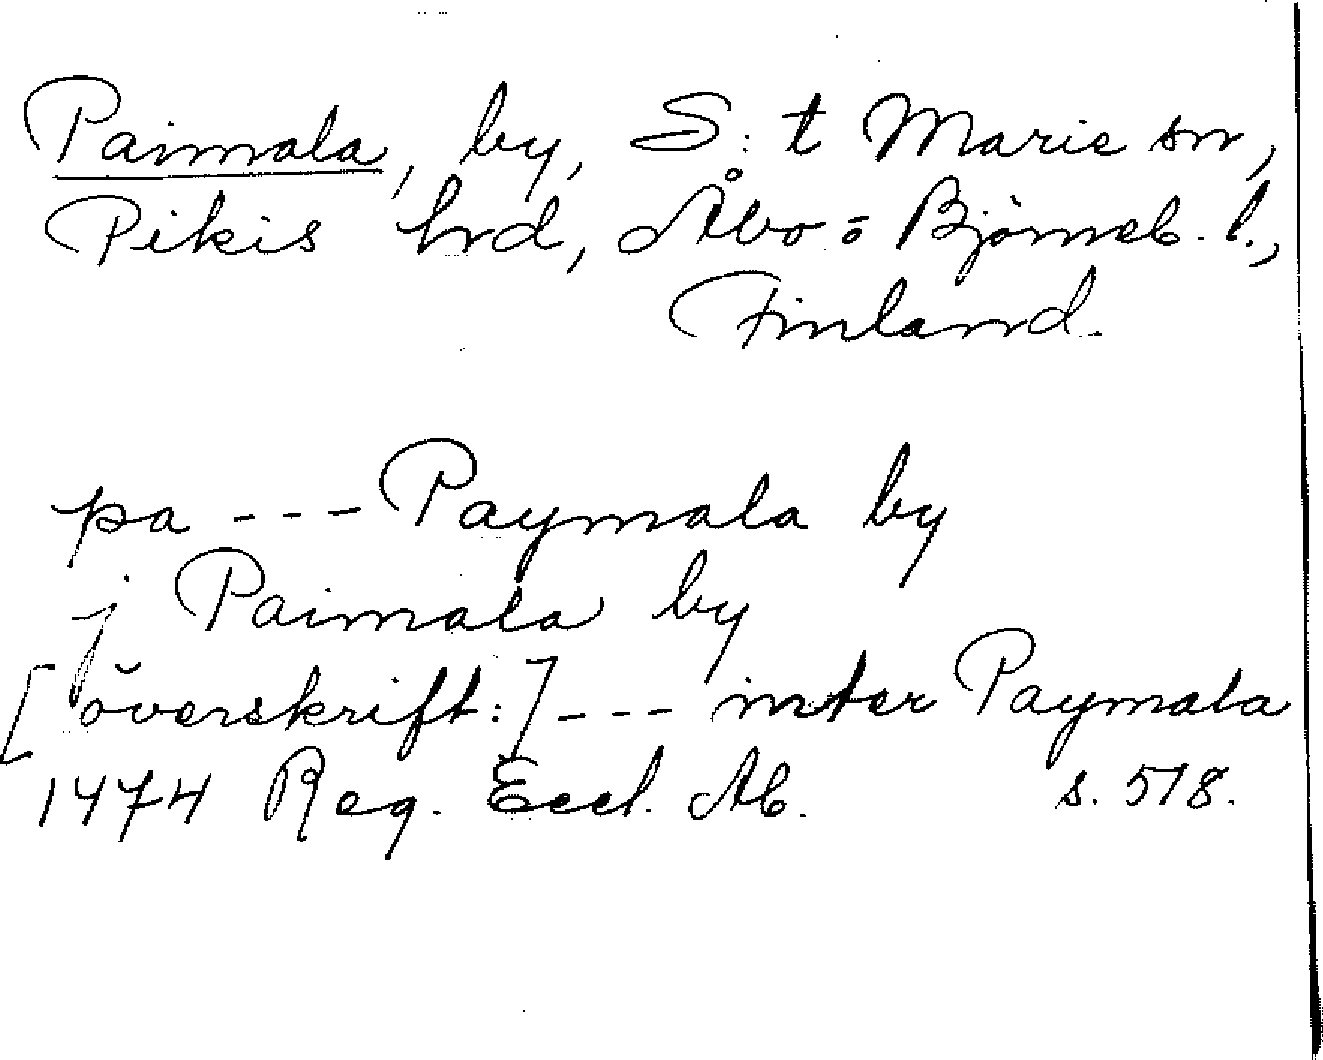 Paimala, by, S:t Marie sn,
Pikis hrd, Åbo-Björneb. l.,
Finland.
pa --- Paymala by
j Paimala by
[överskrift:] --- inter Paymala
1474 Reg. Eccl. Ab. s. 518.